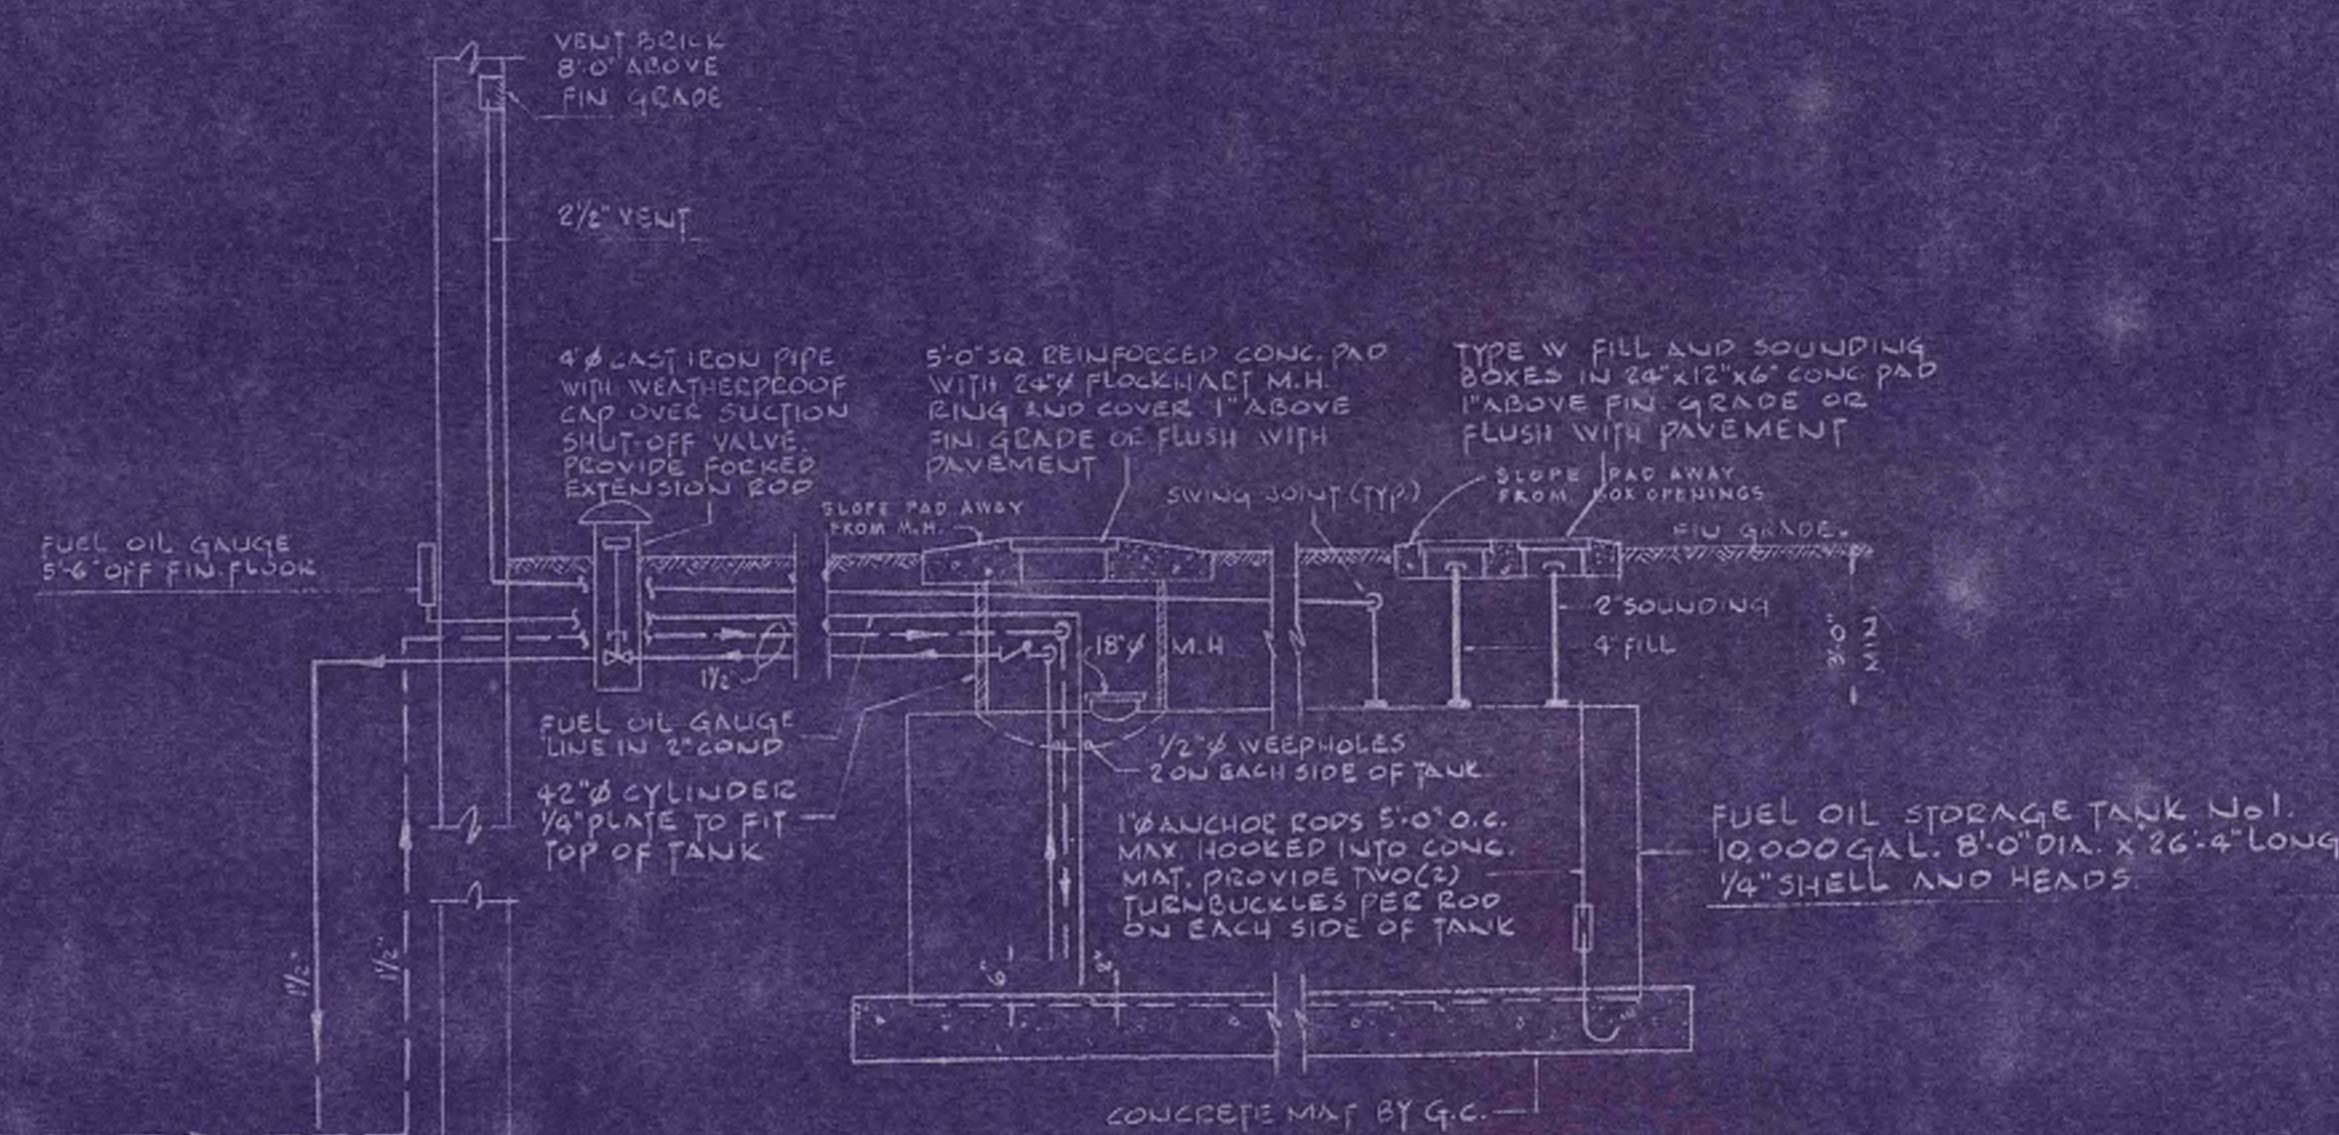 VENT BRICK
8'-0" ABOVE
FIN GRADE
2½" VENT
4"Ø CAST IRON PIPE
WITH WEATHERPROOF
CAP OVER SUCTION
SHUT-OFF VALVE.
PROVIDE FORKED
EXTENSION ROD
5'-0" SQ REINFORCED CONC. PAD
WITH 24"Ø FLOCKHART M.H.
RING AND COVER 1" ABOVE
FIN. GRADE OR FLUSH WITH
PAVEMENT
TYPE W FILL AND SOUNDING
BOXES IN 24"x12"x6" CONC. PAD
1" ABOVE FIN. GRADE OR
FLUSH WITH PAVEMENT
SLOPE PAD AWAY
FROM BOX OPENINGS
SWING JOINT (TYP.)
SLOPE PAD AWAY
FROM M.H.
FIN GRADE.
FUEL OIL GAUGE
5'-6" OFF FIN. FLOOR
2" SOUNDING
4" FILL
3'-0"
MIN.
18"Ø M.H
1½"
FUEL OIL GAUGE
LINE IN 2" COND
½"Ø WEEPHOLES
2 ON EACH SIDE OF TANK
42"Ø CYLINDER
¼" PLATE TO FIT
TOP OF TANK
1"Ø ANCHOR RODS 5'-0" O.C.
MAX. HOOKED INTO CONC.
MAT. PROVIDE TWO (2)
TURNBUCKLES PER ROD
ON EACH SIDE OF TANK
FUEL OIL STORAGE TANK No1.
10,000 GAL. 8'-0" DIA. x 26'-4" LONG
¼" SHELL AND HEADS
1½"
1½"
6"
3"
CONCRETE MAT BY G.C.